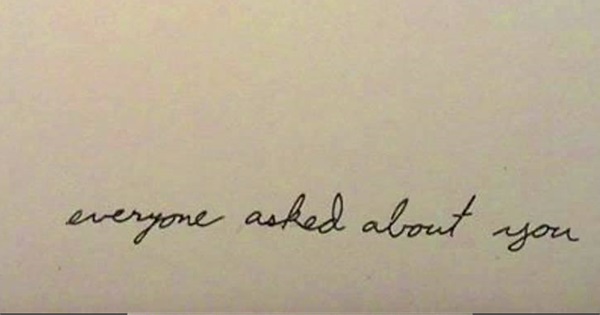 everyone asked about you